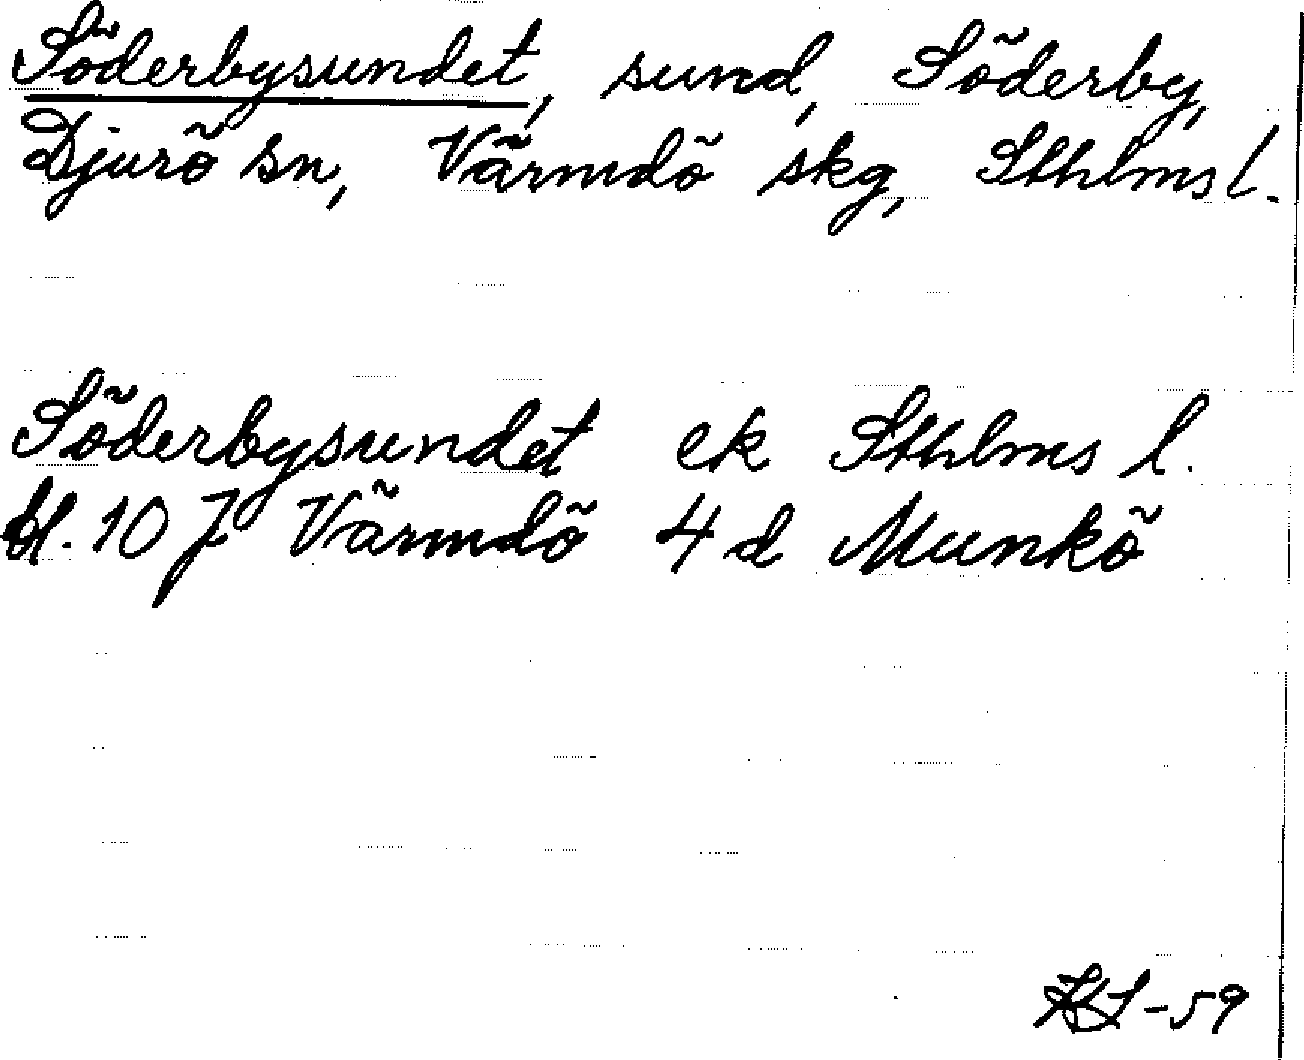 Söderbysundet, sund, Söderby,
Djurö sn, Värmdö skg, Sthlms l.
Söderbysundet ek Sthlms l.
bl. 107 Värmdö 4 d Munkö
-59